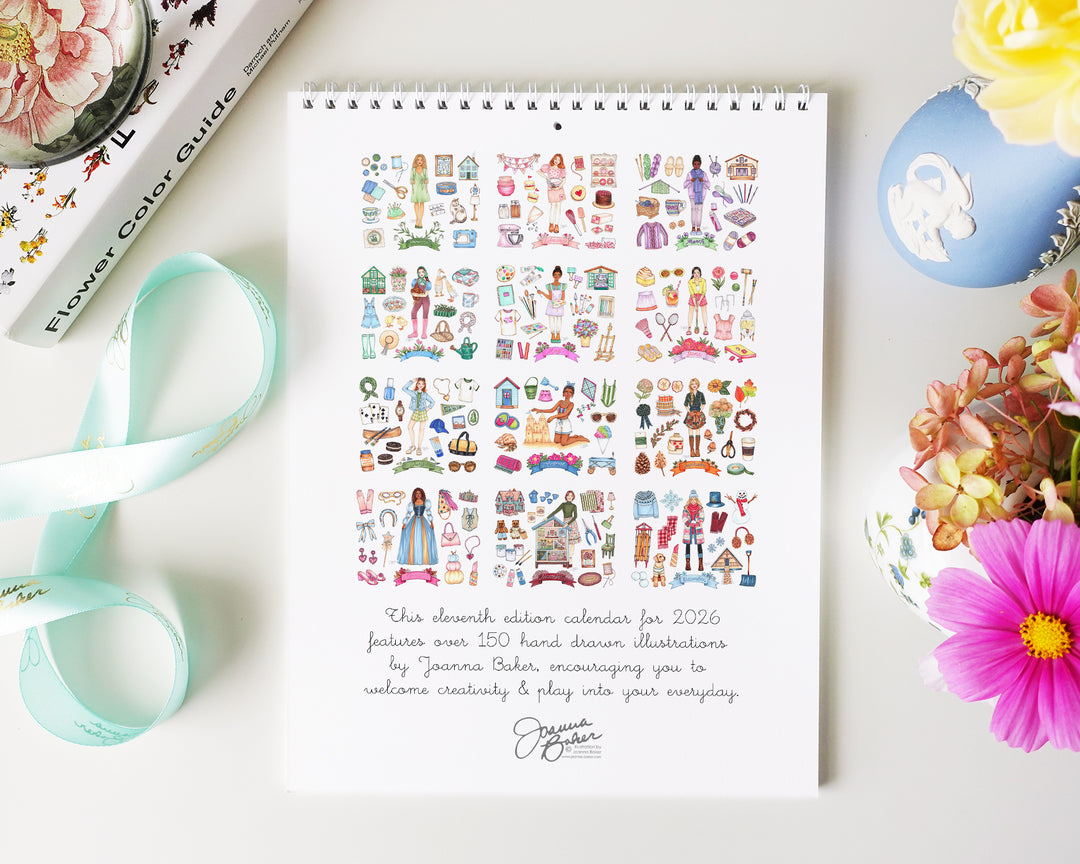 Flower Color Guide
Darroch and
Michael Putnam
March
This eleventh edition calendar for 2026
features over 150 hand drawn illustrations
by Joanna Baker, encouraging you to
welcome creativity & play into your everyday.
Joanna
Baker
© illustration by
Joanna Baker
www.joanna-baker.com